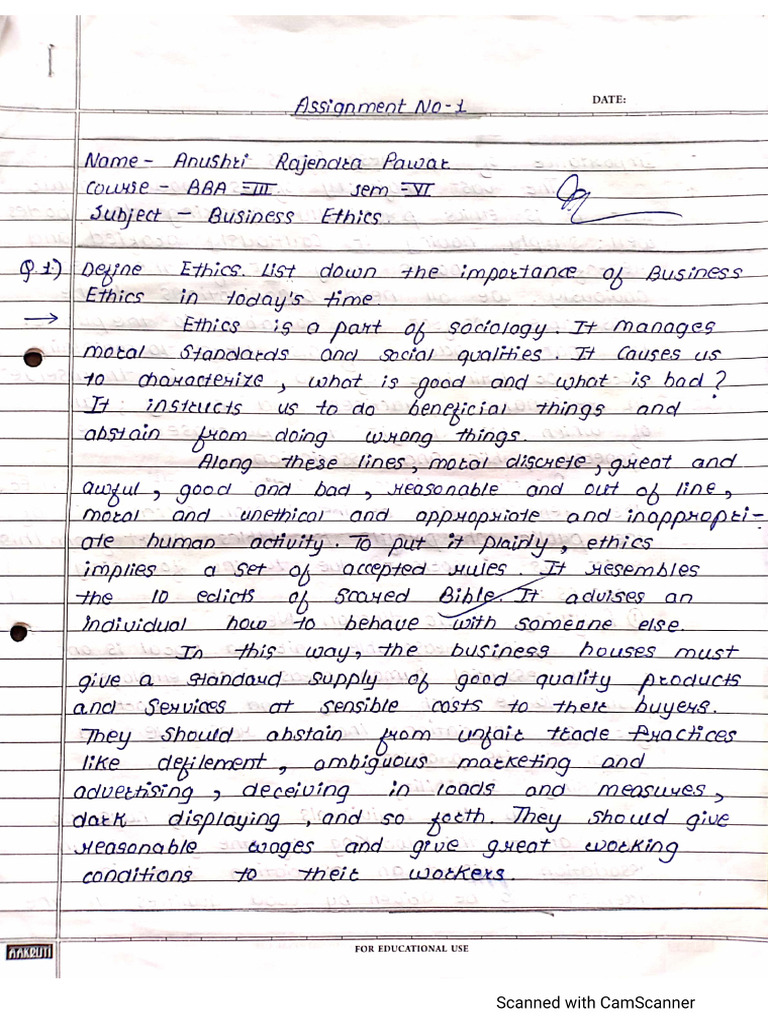 Assignment No-1
DATE:
Name - Anushri Rajendra Pawar
Course - BBA III sem - VI
Subject - Business Ethics
Q.1.) Define Ethics. List down the importance of Business
Ethics in today's time.
→ Ethics is a part of sociology. It manages
moral standards and social qualities. It causes us
to characterize, what is good and what is bad?
It instructs us to do beneficial things and
abstain from doing wrong things.
Along these lines, moral discrete, great and
awful, good and bad, reasonable and out of line,
moral and unethical and appropriate and inappropri-
ate human activity. To put it plainly, ethics
implies a set of accepted rules. It resembles
the 10 edicts of Scared Bible. It advises an
individual how to behave with someone else.
In this way, the business houses must
give a standard supply of good quality products
and services at sensible costs to their buyers.
They should abstain from unfair trade practices
like defilement, ambiguous marketing and
advertising, deceiving in loads and measures,
dark displaying, and so forth. They should give
reasonable wages and give great working
conditions to their workers.
AAKRUTI
FOR EDUCATIONAL USE
Scanned with CamScanner